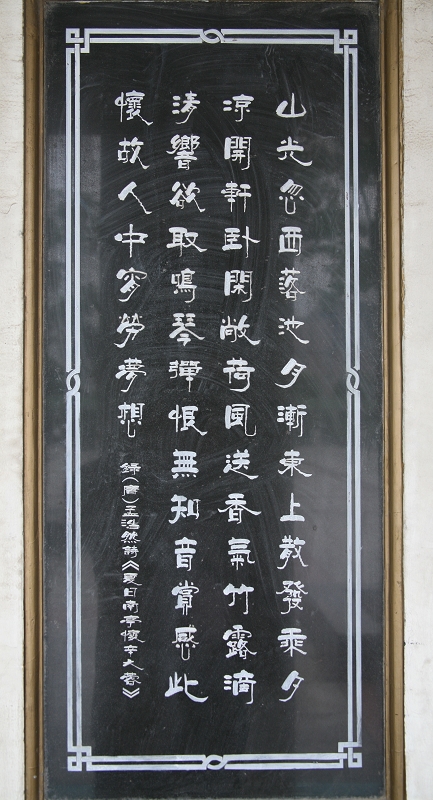 山光忽西落池月漸東上散發乘夕
涼開軒卧閑敞荷風送香氣竹露滴
清響欲取鳴琴彈恨無知音賞感此
懷故人中宵勞夢想
錄(唐)孟浩然詩《夏日南亭懷辛大》